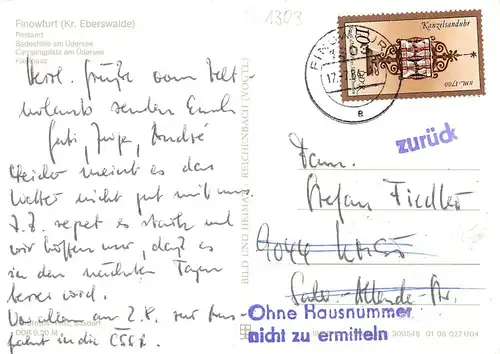 Finowfurt (Kr. Eberswalde)
Postamt
Badestelle am Üdersee
Campingplatz am Üdersee
1303
Herzl. Grüße vom Zelt-
urlaub senden Euch
Gabi, André
Leider meint es das
Wetter nicht gut mit uns.
Z.Z. regnet es ständig und
wir hoffen nur, daß es
in den nächsten Tagen
besser wird.
Vor allem am 2.8. zur Aus-
fahrt in die ČSSR.
DDR 0,20 M
BILD UND HEIMAT REICHENBACH (VOGTL)
FINOWFURT
1303
17.
a
Kanzelsanduhr
um 1700
DDR
zurück
Fam.
Stefan Fiedler
9044
Allende-Str.
Ohne Hausnummer
nicht zu ermitteln
300545 01 05 0221/04